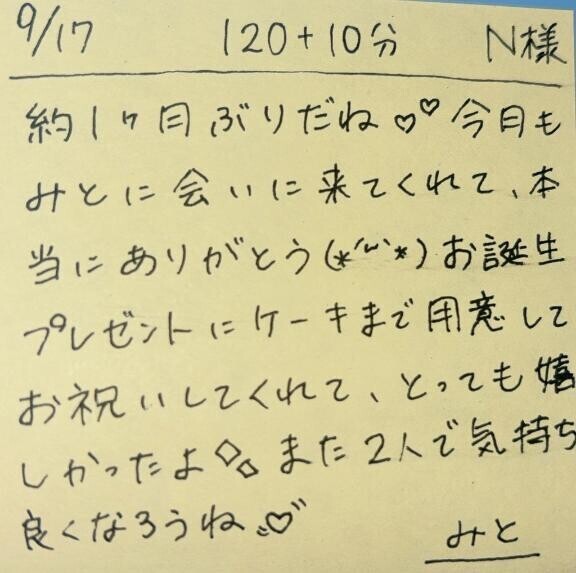 9/17 120+10分 N様
約1ヶ月ぶりだね♡♡今月も
みとに会いに来てくれて、本
当にありがとう(*´ω`*)お誕生
プレゼントにケーキまで用意して
お祝いしてくれて、とっても嬉
しかったよ◇◇また2人で気持ち
良くなろうね♡
みと